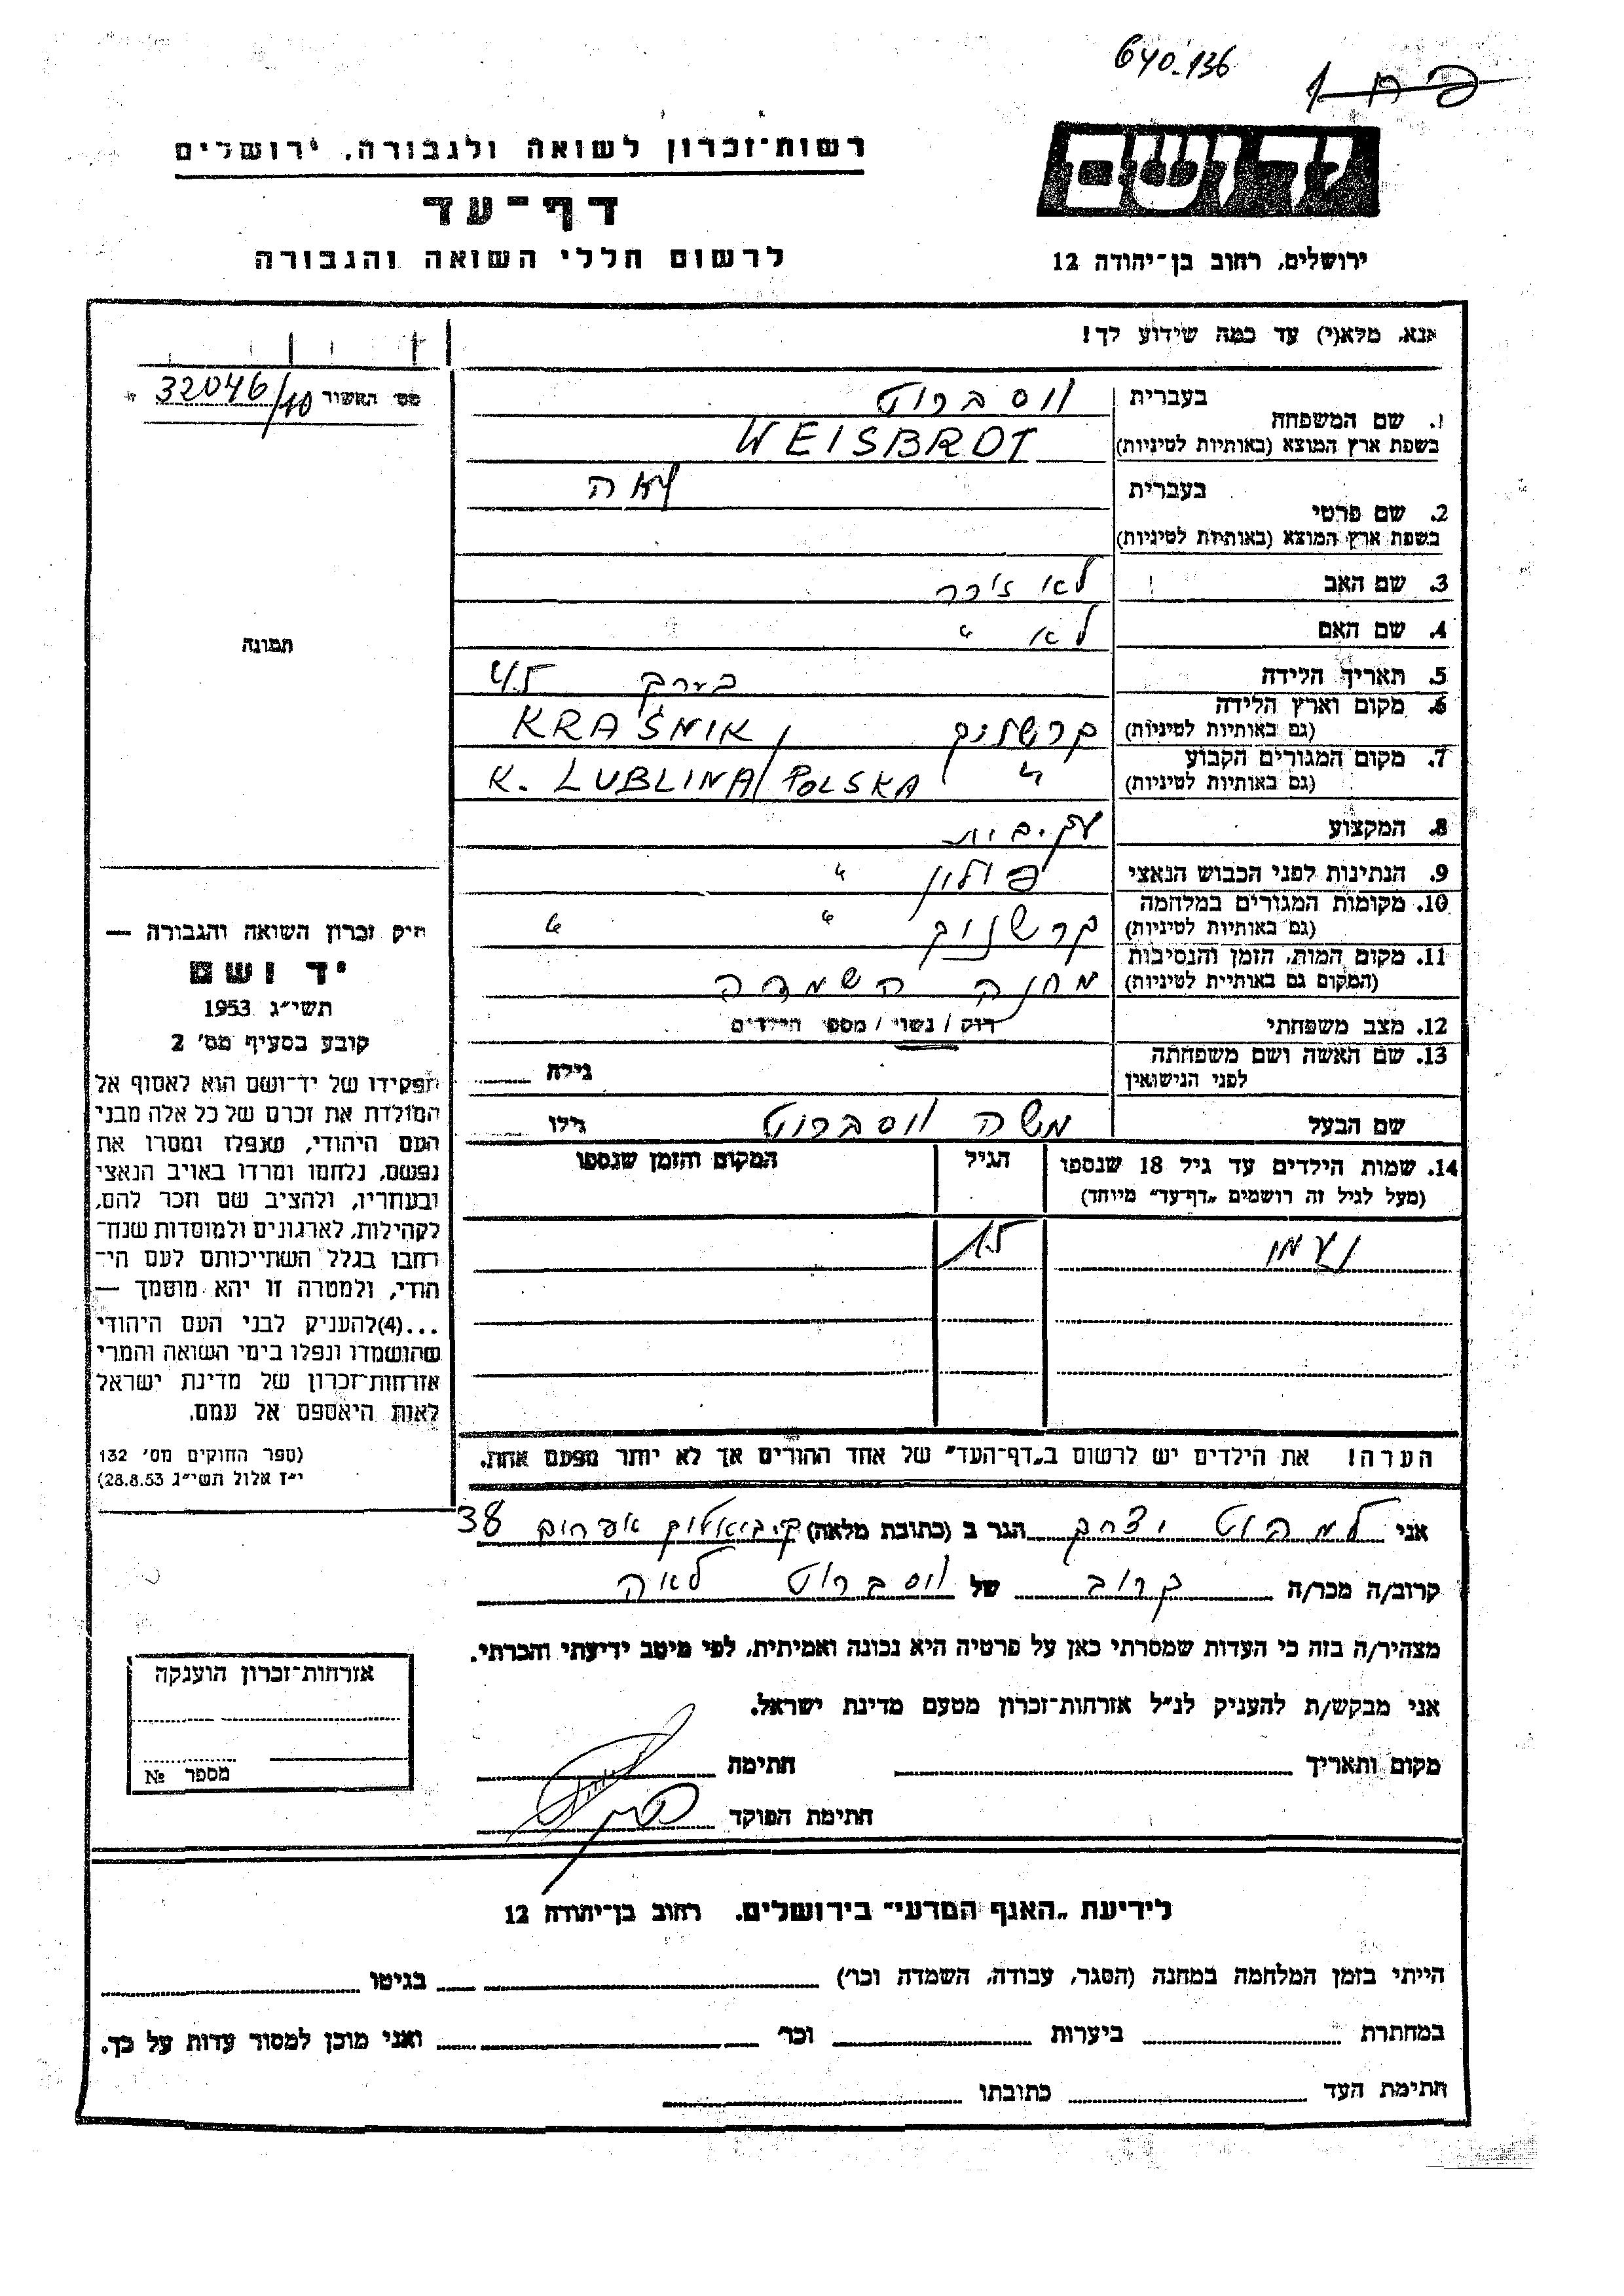 640.136
רשות־זכרון לשואה ולגבורה, ירושלים
דף־עד
לרשום חללי השואה והגבורה
יד ושם
ירושלים, רחוב בן־יהודה 12
אנא, מלא(י) עד כמה שידוע לך!
מס׳ האשור 32046/10
1. שם המשפחה
בעברית ווסברוט
בשפת ארץ המוצא (באותיות לטיניות) WEISBROT
2. שם פרטי
בעברית לאה
בשפת ארץ המוצא (באותיות לטיניות)
3. שם האב לא זיכר
4. שם האם לא "
5. תאריך הלידה בערך 45
6. מקום וארץ הלידה קרשניק KRAŚNIK
(גם באותיות לטיניות)
7. מקום המגורים הקבוע " K. LUBLINA/POLSKA
(גם באותיות לטיניות)
8. המקצוע עק.בית
9. הנתינות לפני הכבוש הנאצי פולון "
10. מקומות המגורים במלחמה קרשניק " "
(גם באותיות לטיניות)
11. מקום המות, הזמן והנסיבות מחנה השמדה
(המקום גם באותיית לטיניות)
12. מצב משפחתי רוק / נשוי / מספר הילדים
13. שם האשה ושם משפחתה
לפני הנישואין
גילה
שם הבעל משה ווסברוט גילו
14. שמות הילדים עד גיל 18 שנספו
(מעל לגיל זה רושמים „דף־עד״ מיוחד)
הגיל
המקום והזמן שנספו
נעמי 15
הערה! את הילדים יש לרשום ב„דף־העד״ של אחד ההורים אך לא יותר מפעם אחת.
תמונה
חיק זכרון השואה והגבורה —
יד ושם
תשי״ג 1953
קובע בסעיף מס׳ 2
תפקידו של יד־ושם הוא לאסוף אל
המולדת את זכרם של כל אלה מבני
העם היהודי, שנפלו ומסרו את
נפשם, נלחמו ומרדו באויב הנאצי
ובעוזריו, ולהציב שם וזכר להם,
לקהילות, לארגונים ולמוסדות שנח־
רחבו בגלל השתייכותם לעם הי־
הודי, ולמטרה זו יהא מוסמך —
...(4)להעניק לבני העם היהודי
שהושמדו ונפלו בימי השואה והמרי
אזרחות־זכרון של מדינת ישראל
לאות היאספם אל עמם.
(ספר החוקים מס׳ 132
י״ז אלול תשי״ג 28.8.53)
אני למהוט יצחק הגר ב (כתובת מלאה) קיביאטיק אפרים 38
קרוב/ה מכר/ה קרוב של ווסברוט לאה
מצהיר/ה בזה כי העדות שמסרתי כאן על פרטיה היא נכונה ואמיתית, לפי מיטב ידיעתי והכרתי.
אני מבקש/ת להעניק לנ״ל אזרחות־זכרון מטעם מדינת ישראל.
מקום ותאריך חתימה
חתימת הפוקד
אזרחות־זכרון הוענקה
מספר №
לידיעת „האגף המדעי״ בירושלים, רחוב בן־יהודה 12
הייתי בזמן המלחמה במחנה (הסגר, עבודה, השמדה וכו׳) בגיטו
במחתרת ביערות וכו׳ ואני מוכן למסור עדות על כך.
חתימת העד כתובתו